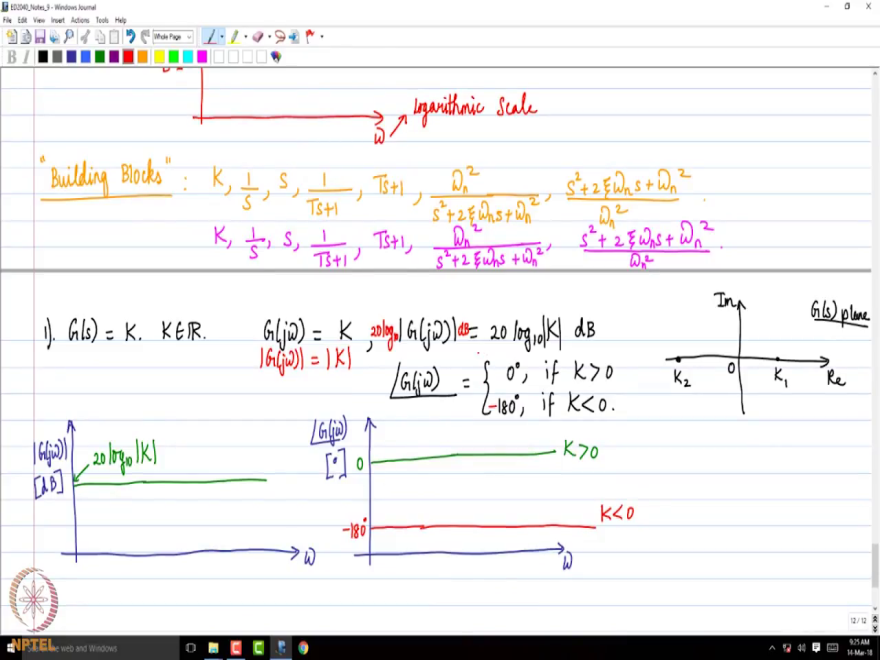 ED2040_Notes_9 - Windows Journal
File Edit View Insert Actions Tools Help
Whole Page
B I
ω Logarithmic Scale
"Building Blocks" : K, 1/s, s, 1/(Ts+1), Ts+1, ωn²/(s²+2ξωns+ωn²), (s²+2ξωns+ωn²)/ωn².
K, 1/s, s, 1/(Ts+1), Ts+1, ωn²/(s²+2ξωns+ωn²), (s²+2ξωns+ωn²)/ωn².
1). G(s) = K. K∈ℝ. G(jω) = K, 20log10|G(jω)| dB = 20 log10|K| dB
|G(jω)| = |K|
∠G(jω) = { 0°, if K>0
-180°, if K<0.
Im
G(s) plane
K2 0 K1 Re
|G(jω)|
[dB]
20 log10|K|
ω
∠G(jω)
[°]
0
K>0
-180°
K<0
ω
12 / 12
NPTEL
9:25 AM
14-Mar-18